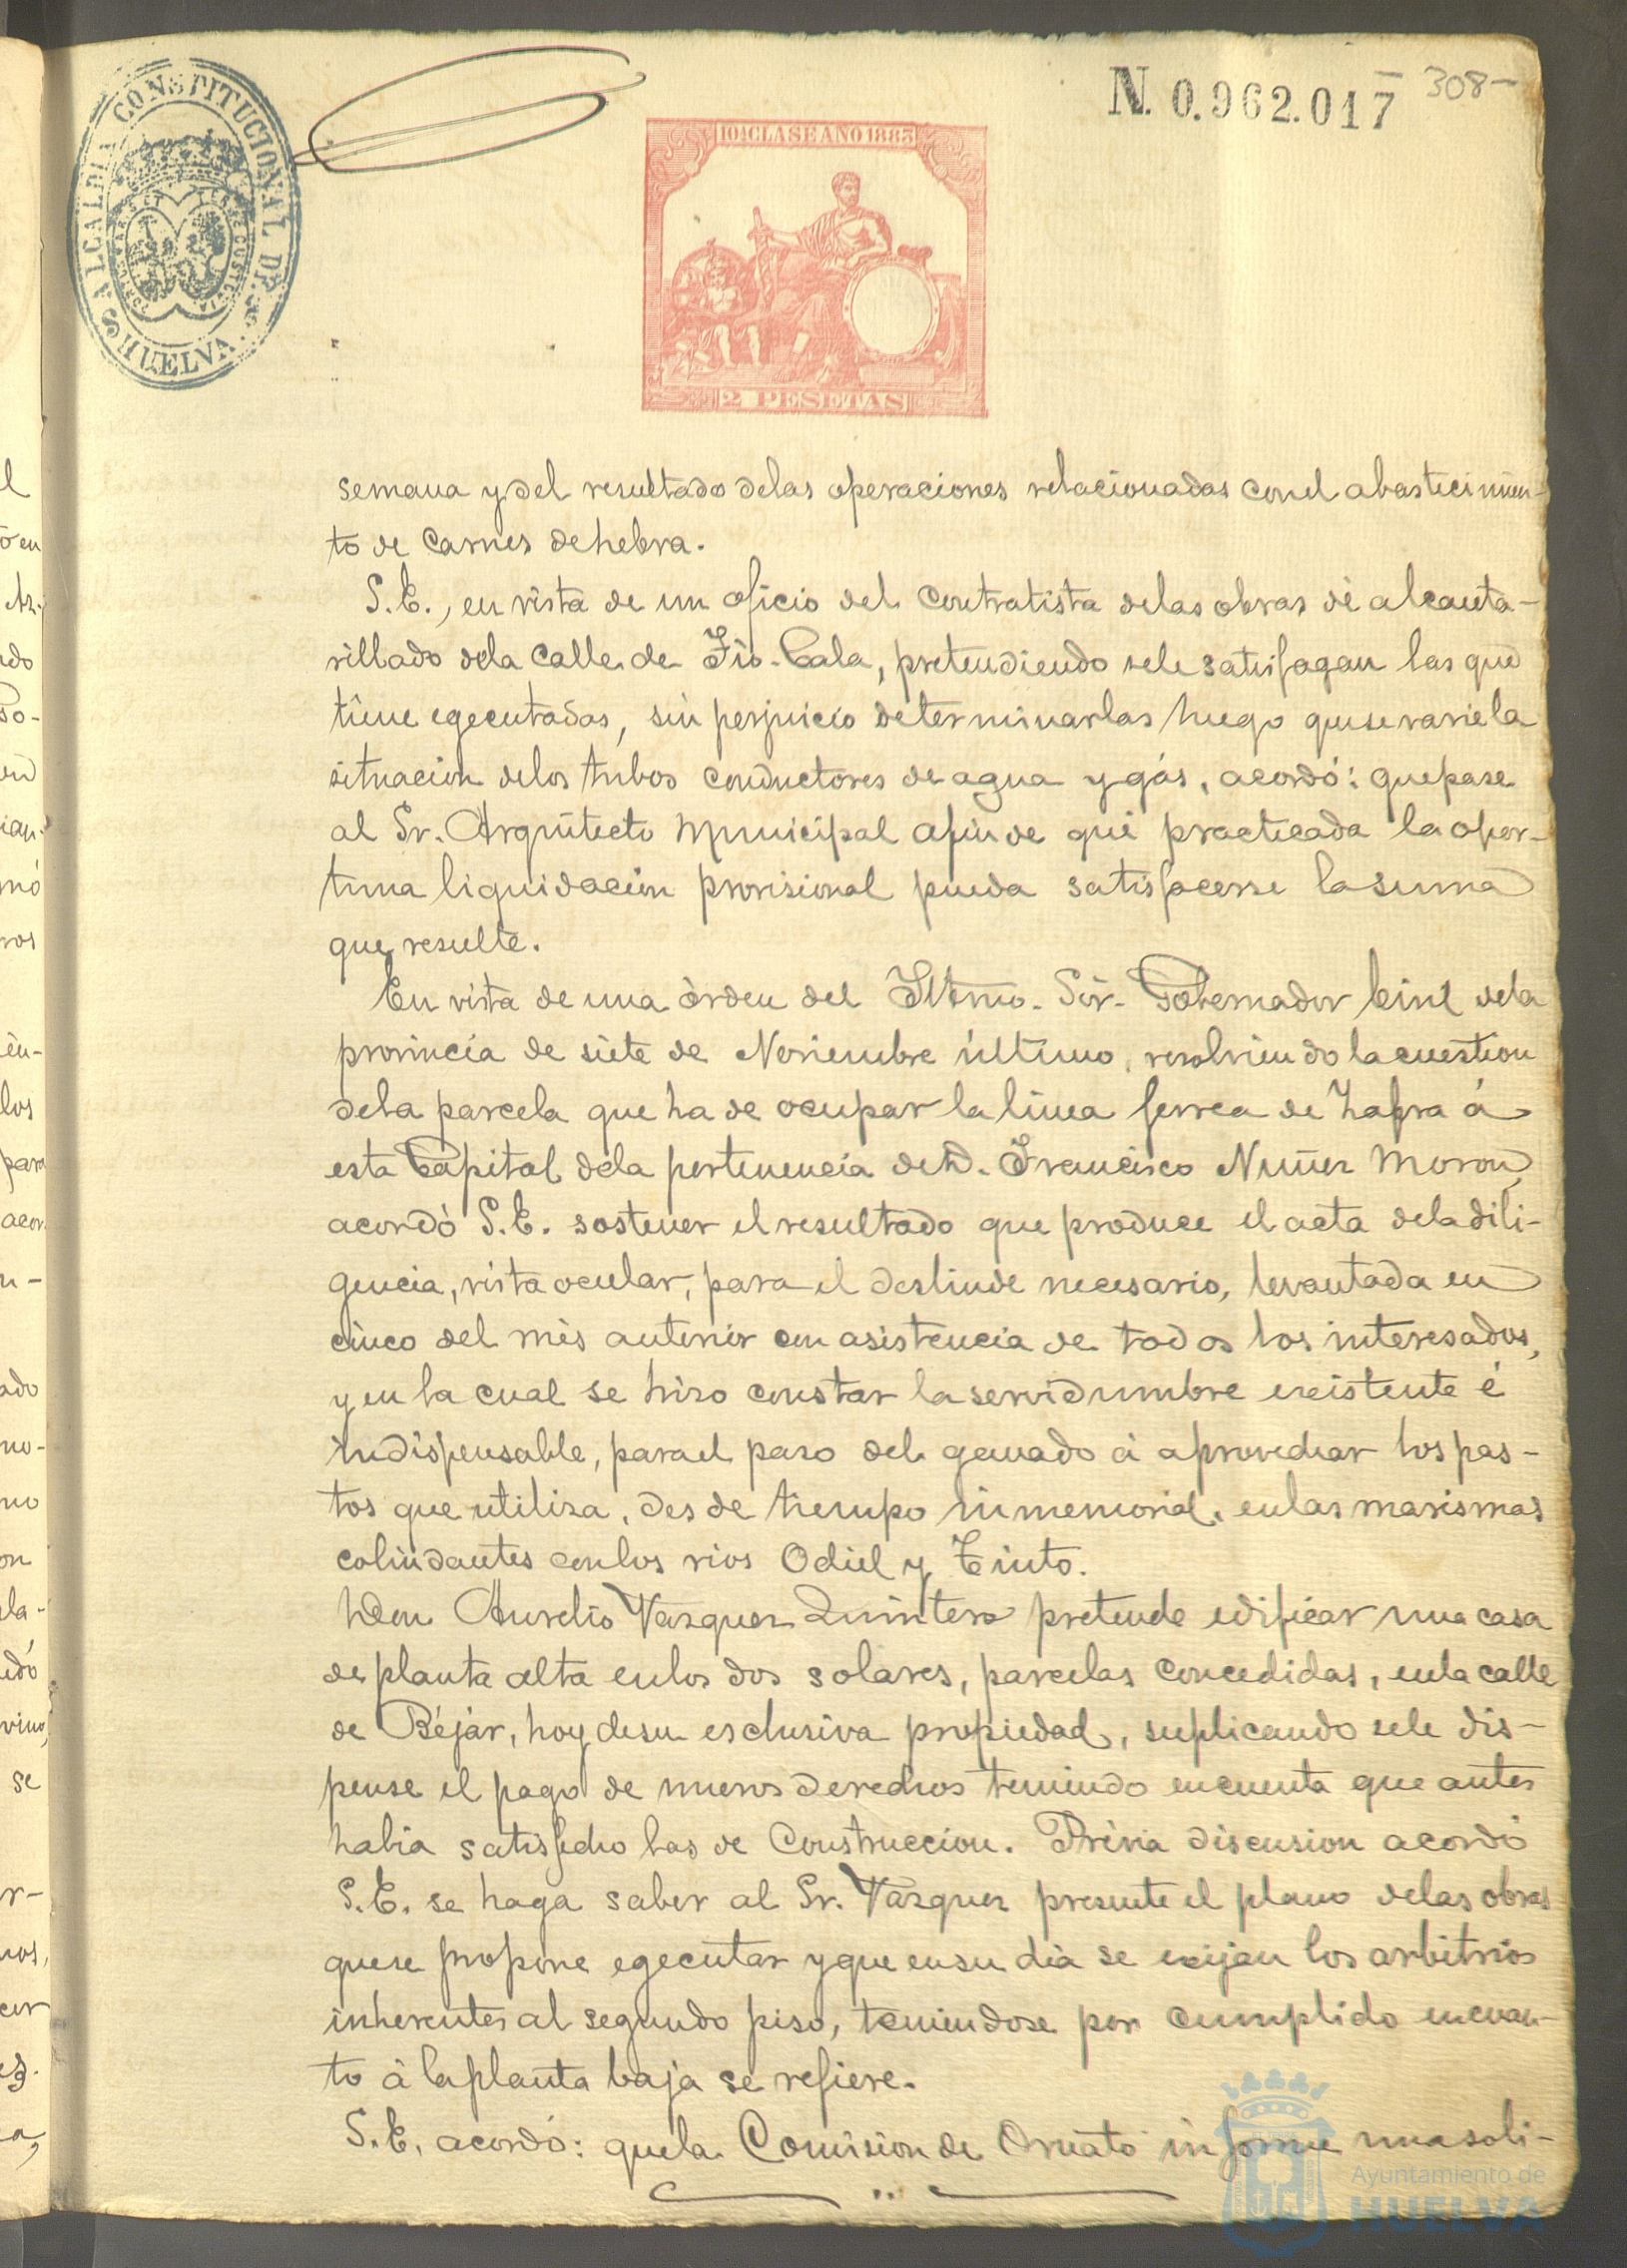 N. 0.962.017
308-
ALCALDIA CONSTITUCIONAL DE
HUELVA
10ª CLASE AÑO 1883
2 PESETAS
semana y del resultado de las operaciones relacionadas con el abastecimien-
to de carnes de hebra.
S.E., en vista de un oficio del contratista de las obras de alcanta-
rillado de la calle de Fco. Cala, pretendiendo se le satisfagan las que
tiene egecutadas, sin perjuicio de terminarlas luego que se varie la
situacion de los tubos conductores de agua y gás, acordó: que pase
al Sr. Arquitecto Municipal afin de que practicada la opor-
tuna liquidacion provisional pueda satisfacerse la suma
que resulte.
En vista de una órden del Iltmo. Sór. Gobernador Civil de la
provincia de siete de Noviembre último, resolviendo la cuestion
de la parcela que ha de ocupar la linea ferrea de Zafra á
esta Capital de la pertenencia de D. Francisco Nuñez Moron,
acordó S.E. sostener el resultado que produce el acta de la dili-
gencia, vista ocular, para el deslinde necesario, levantada en
cinco del mes anterior con asistencia de todos los interesados,
y en la cual se hizo constar la servidumbre existente é
indispensable, para el paso del ganado á aprovechar los pas-
tos que utiliza, desde tiempo inmemorial, en las marismas
colindantes con los rios Odiel y Tinto.
Don Aurelio Vazquez Quintero pretende edificar una casa
de planta alta en los dos solares, parcelas concedidas, en la calle
de Béjár, hoy de su esclusiva propiedad, suplicando se le dis-
pense el pago de nuevos derechos teniendo en cuenta que antes
habia satisfecho los de Construccion. Prévia discusion acordó
S.E. se haga saber al Sr. Vazquez presente el plano de las obras
que se propone egecutar y que en su dia se exijan los arbitrios
inherentes al segundo piso, teniendose por cumplido en cuan-
to á la planta baja se refiere.
S.E. acordó: que la Comision de Ornato informe una soli-
Ayuntamiento de
HUELVA